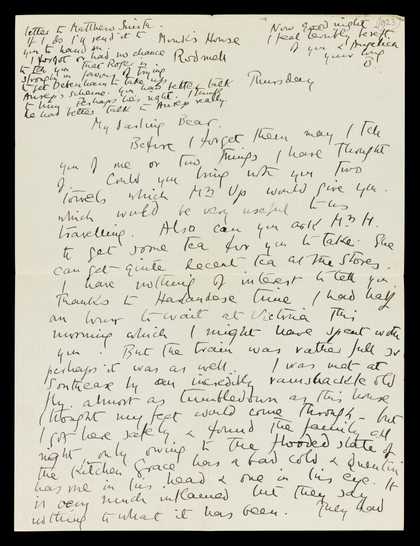 letter to Matthew Smith.
If I do I'll send it to
you to hand on.
I forgot or had no chance
to tell you that Roger is
strongly in favour of trying
to get Debenham to take up
Anrep's scheme. You had better talk
to him. Perhaps he's right. I think
he had better talk to Anrep really.
Now good night
I feel terribly bereft
of you & Angelica
your loving
1923
Monk's House
Rodmell
Thursday
My darling Bear.
Before I forget them may I tell
you of one or two things I have thought
of. Could you bring with you two
towels which Mrs Up would give you.
which would be very useful to us
travelling. Also can you ask Mrs H.
to get some tea for you to take. She
can get quite decent tea at the Stores.
I have nothing of interest to tell you.
Thanks to time I had half
an hour to wait at Victoria this
morning which I might have spent with
you. But the train was rather full so
perhaps it was as well. I was met at
Southease by an incredibly ramshackle old
fly, almost as tumbledown as this house
I thought my feet would come through – but
I got here safely & found the family all
right, only owing to the flooded state of
the kitchen Grace has a bad cold & Quentin
has one in his head & one in his eye. It
is very much inflamed but they say
nothing to what it has been. They had